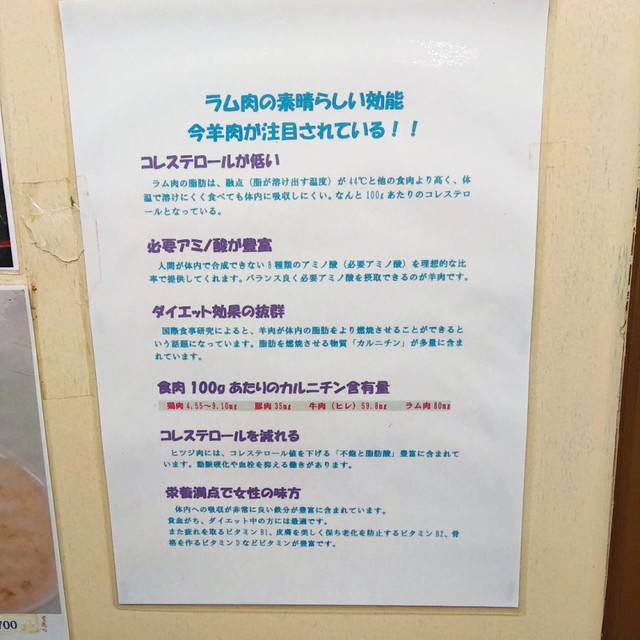 ラム肉の素晴らしい効能
今羊肉が注目されている！！
コレステロールが低い
ラム肉の脂肪は、融点（脂が溶け出す温度）が44℃と他の食肉より高く、体
温で溶けにくく食べても体内に吸収しにくい。なんと100gあたりのコレステロ
ールとなっている。
必要アミノ酸が豊富
人間が体内で合成できない8種類のアミノ酸（必要アミノ酸）を理想的な比
率で提供してくれます。バランス良く必要アミノ酸を摂取できるのが羊肉です。
ダイエット効果の抜群
国際食事研究によると、羊肉が体内の脂肪をより燃焼させることができると
いう話題になっています。脂肪を燃焼させる物質「カルニチン」が多量に含ま
れています。
食肉100gあたりのカルニチン含有量
鶏肉4.55～9.10mg 豚肉35mg 牛肉（ヒレ）59.8mg ラム肉80mg
コレステロールを減れる
ヒツジ肉には、コレステロール値を下げる「不飽と脂肪酸」豊富に含まれて
います。動脈硬化や血栓を抑える働きがあります。
栄養満点で女性の味方
体内への吸収が非常に良い鉄分が豊富に含まれています。
貧血がち、ダイエット中の方には最適です。
また疲れを取るビタミンB1、皮膚を美しく保ち老化を防止するビタミンB2、骨
格を作るビタミンDなどビタミンが豊富です。
700